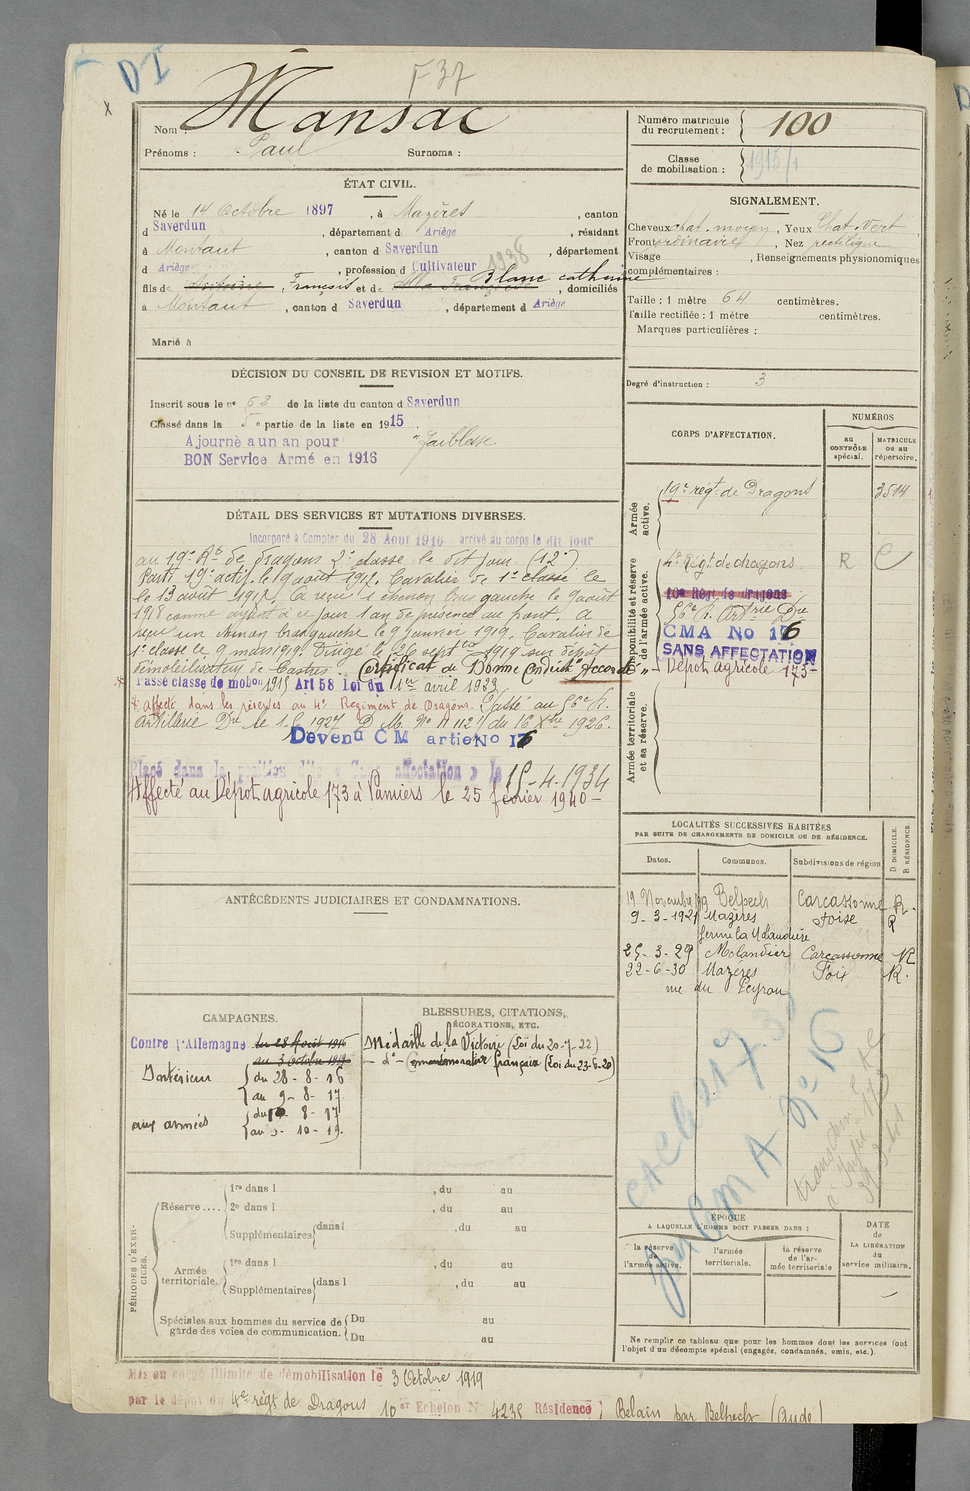 DI
F 37
x
Nom : Mansac
Prénoms : Paul Surnoms :
Numéro matricule du recrutement : 100
Classe de mobilisation : 1915/1
ÉTAT CIVIL.
Né le 14 Octobre 1897, à Mazères, canton
d Saverdun, département d Ariège, résidant
à Montaut, canton d Saverdun, département
d Ariège, profession d Cultivateur 1938
fils de Antoine, François et de Blanc catherine, domiciliés
à Montaut, canton d Saverdun, département d Ariège
Marié à
SIGNALEMENT.
Cheveux chat. moyen, Yeux Chat. Vert,
Front ordinaire, Nez rectiligne
Visage , Renseignements physionomiques
complémentaires :
Taille : 1 mètre 64 centimètres.
Taille rectifiée : 1 mètre centimètres.
Marques particulières :
Degré d'instruction : 3
DÉCISION DU CONSEIL DE REVISION ET MOTIFS.
Inscrit sous le n° 63 de la liste du canton d Saverdun
Classé dans la 5e partie de la liste en 1915.
Ajourné a un an pour "faiblesse
BON Service Armé en 1916
CORPS D'AFFECTATION.
NUMÉROS
au CONTRÔLE spécial.
MATRICULE ou au répertoire.
Armée active.
19e régt de Dragons 3514
Disponibilité et réserve de l'armée active.
4e Régt de dragons. R
10e Régt de dragons
56e R. Artrie Dre
CMA No 16
SANS AFFECTATION
" - Dépot agricole 173 -
Armée territoriale et sa réserve.
DÉTAIL DES SERVICES ET MUTATIONS DIVERSES.
Incorporé à Compter du 28 Aout 1916 arrivé au corps le dit jour
au 19e Rt de dragons 2e classe le dit jour. (12e)
Parti 19e actif. le 9 août 1917. Cavalier de 1e classe le
le 13 août 1918. A reçu 1 chevron bras gauche le 9 août
1918 comme ayant à ce jour 1 an de présence au front. A
reçu un chevron bras gauche le 9 janvier 1919. Cavalier de
1e classe le 9 mars 1919. Dirigé le 26 septbre 1919 sur dépôt
démobilisateur de Castres. Certificat de Bonne Conduite "Accordé"
Passé classe de mobon 1915 Art 58 Loi du 1er avril 1923
* Affecté dans les réserves au 4e Regiment de Dragons. Passé au 56e R.
Artillerie Dre le 1.1.1927 D.M. No A 112 du 16 Xbre 1926.
Devenu C M artie No 16
Placé dans la position dite « Sans affectation » le 15-4-1934
Affecté au Dépot agricole 173 à Pamiers le 25 février 1940 -
LOCALITÉS SUCCESSIVES HABITÉES
PAR SUITE DE CHANGEMENTS DE DOMICILE OU DE RÉSIDENCE.
Dates. Communes. Subdivisions de région D DOMICILE. R RÉSIDENCE.
19 Novembre 19 Belpech Carcassonne R.
9-3-1921 Mazères Foix R
25-3-29 Molandier Carcassonne R
22-6-30 Mazères Foix R.
rue du Peyrou
ANTÉCÉDENTS JUDICIAIRES ET CONDAMNATIONS.
CAMPAGNES.
Contre l'Allemagne du 28 Août 1916
au 3 octobre 1919
Intérieur du 28-8-16
au 9-8-17
aux armées du 10-8-17
au 3-10-19.
BLESSURES, CITATIONS,
DÉCORATIONS, ETC.
Médaille de la Victoire (Loi du 20-7-22)
- do - Commémorative française (Loi du 23-6-20)
PÉRIODES D'EXERCICES.
Réserve....
1re dans l , du au
2e dans l , du au
Supplémentaires dans l , du au
Armée territoriale.
1re dans l , du au
Supplémentaires dans l , du au
Spéciales aux hommes du service de garde des voies de communication.
Du au
Du au
CMA No 16
ÉPOQUE
A LAQUELLE L'HOMME DOIT PASSER DANS :
la réserve de l'armée active.
l'armée territoriale.
la réserve de l'armée territoriale
DATE de LA LIBÉRATION du service militaire.
Ne remplir ce tableau que pour les hommes dont les services font
l'objet d'un décompte spécial (engagés, condamnés, omis, etc.).
Mis en congé illimité de démobilisation le 3 Octobre 1919
par le dépôt du 4e régt de Dragons 10er Echelon N° 4235 Résidence ; Belain par Belpech (Aude)